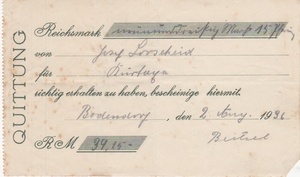 QUITTUNG
Reichsmark neununddreißig Mark 15 Pfg
von Josef Lorscheid
für Kurtaxe
richtig erhalten zu haben, bescheinige hiermit.
Bodendorf, den 2 Aug. 1936
RM 39,15.-